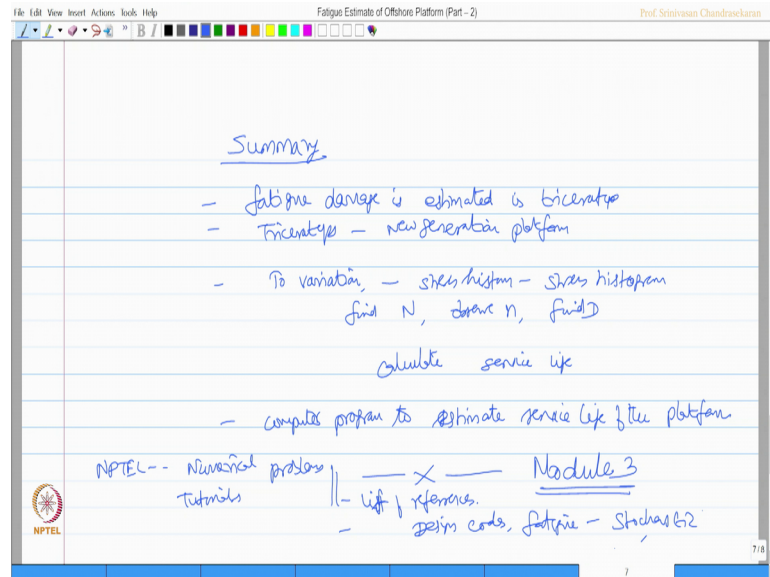 File Edit View Insert Actions Tools Help
Fatigue Estimate of Offshore Platform (Part – 2)
Prof. Srinivasan Chandrasekaran
B I
Summary
- fatigue damage is estimated is triceratops
- Triceratops - New generation platform
- To variation, - stress history - stress histogram
find N, n, find D
Calculate service life
- computer program to estimate service life of the platform
NPTEL -- Numerical problems
Tutorials
x
Module 3
- list of references.
- Design codes, fatigue - Stochastic
NPTEL
7/8
7